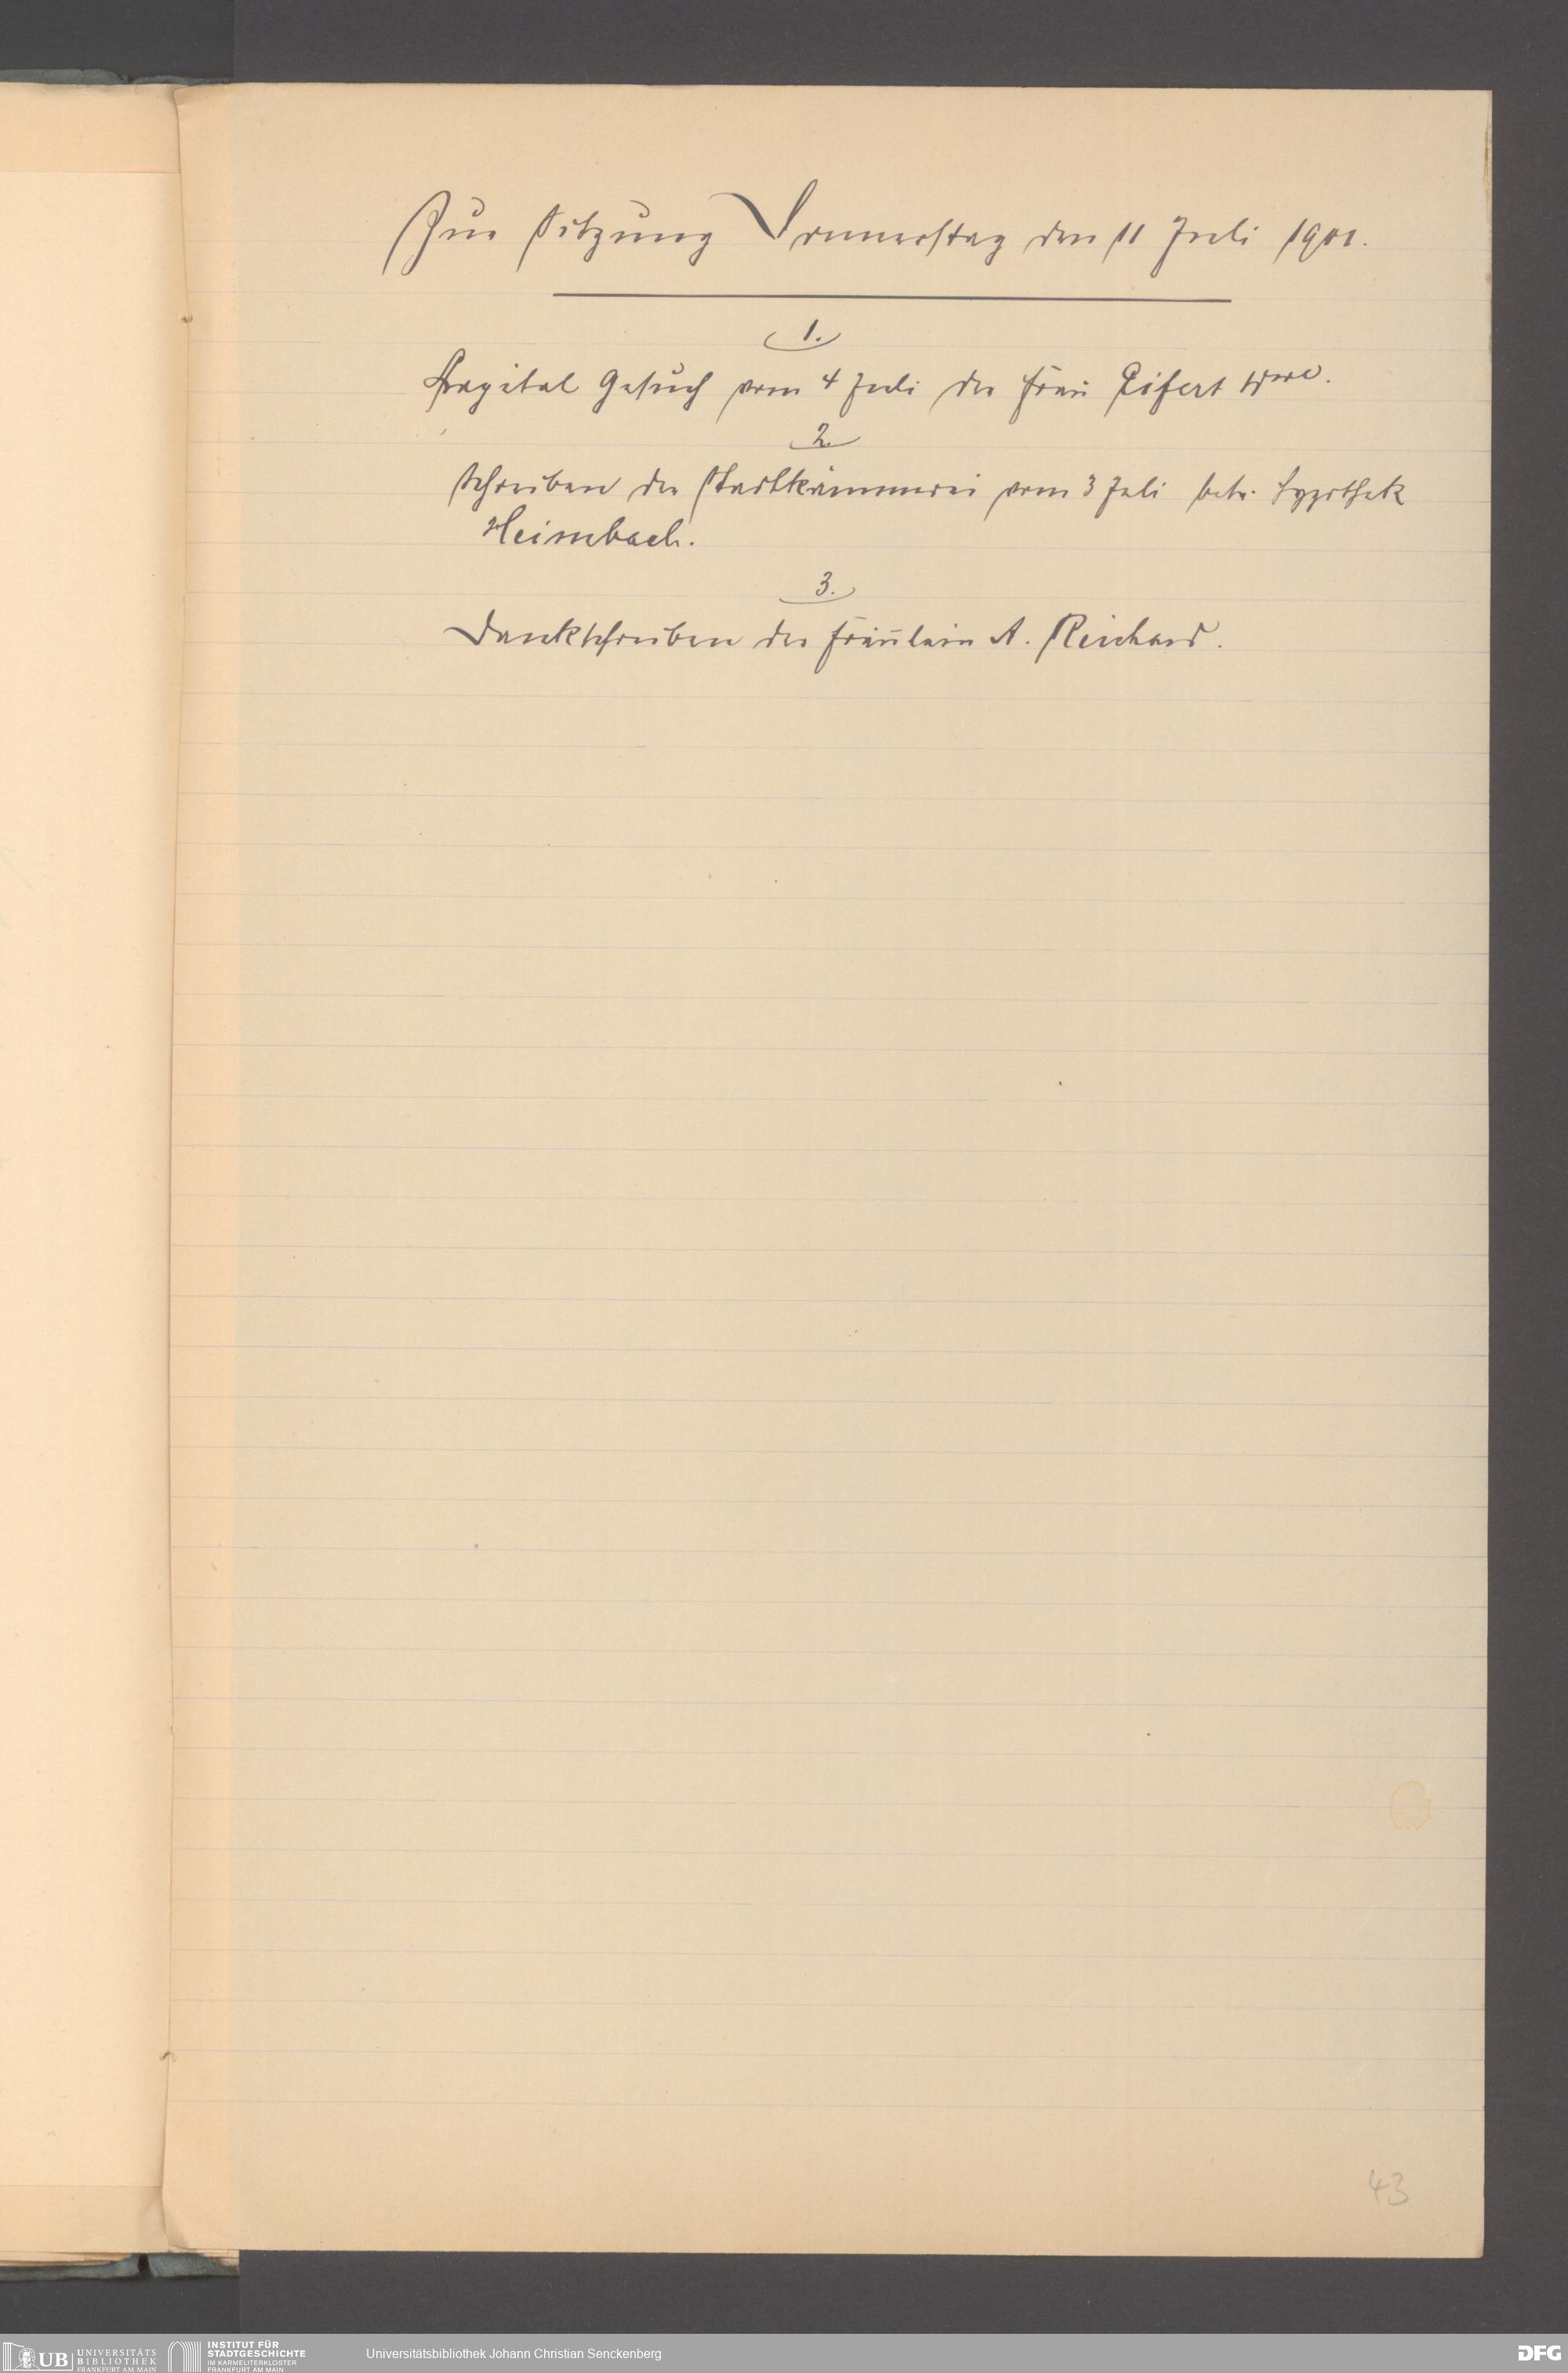 Zur Sitzung Donnerstag den 11 Juli 1901.
1.
Kapital Gesuch vom 4 Juli der Frau Eifert Wwe.
2.
Schreiben der Stadtkämmerei vom 3 Juli betr. Hypothek
Heimbach.
3.
Dankschreiben der Fräulein A. Reichard.
43
UB UNIVERSITÄTS
BIBLIOTHEK
FRANKFURT AM MAIN
INSTITUT FÜR
STADTGESCHICHTE
IM KARMELITERKLOSTER
FRANKFURT AM MAIN
Universitätsbibliothek Johann Christian Senckenberg
DFG